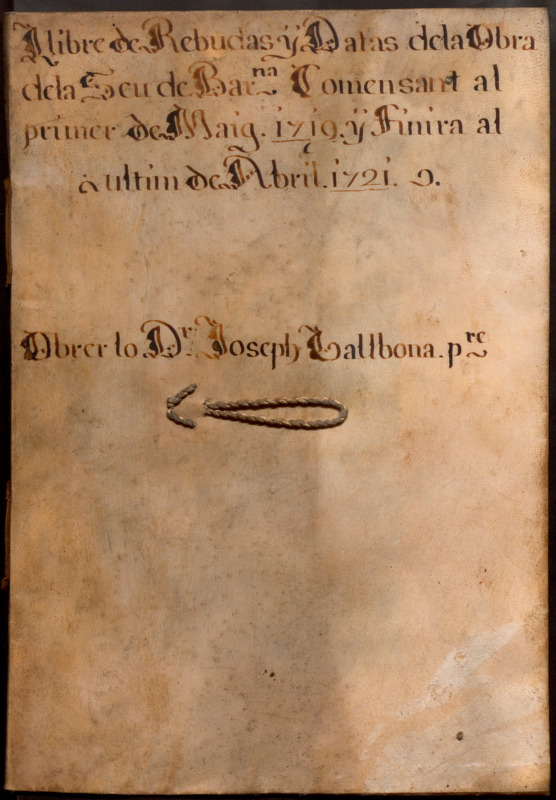 Llibre de Rebudas ÿ Datas dela Obra
dela Seu de Bar.na Comensant al
primer de Maig. 1719. ÿ Finira al
ultim de Abril. 1721.
Obrer lo Dr. Joseph Vallbona. pre